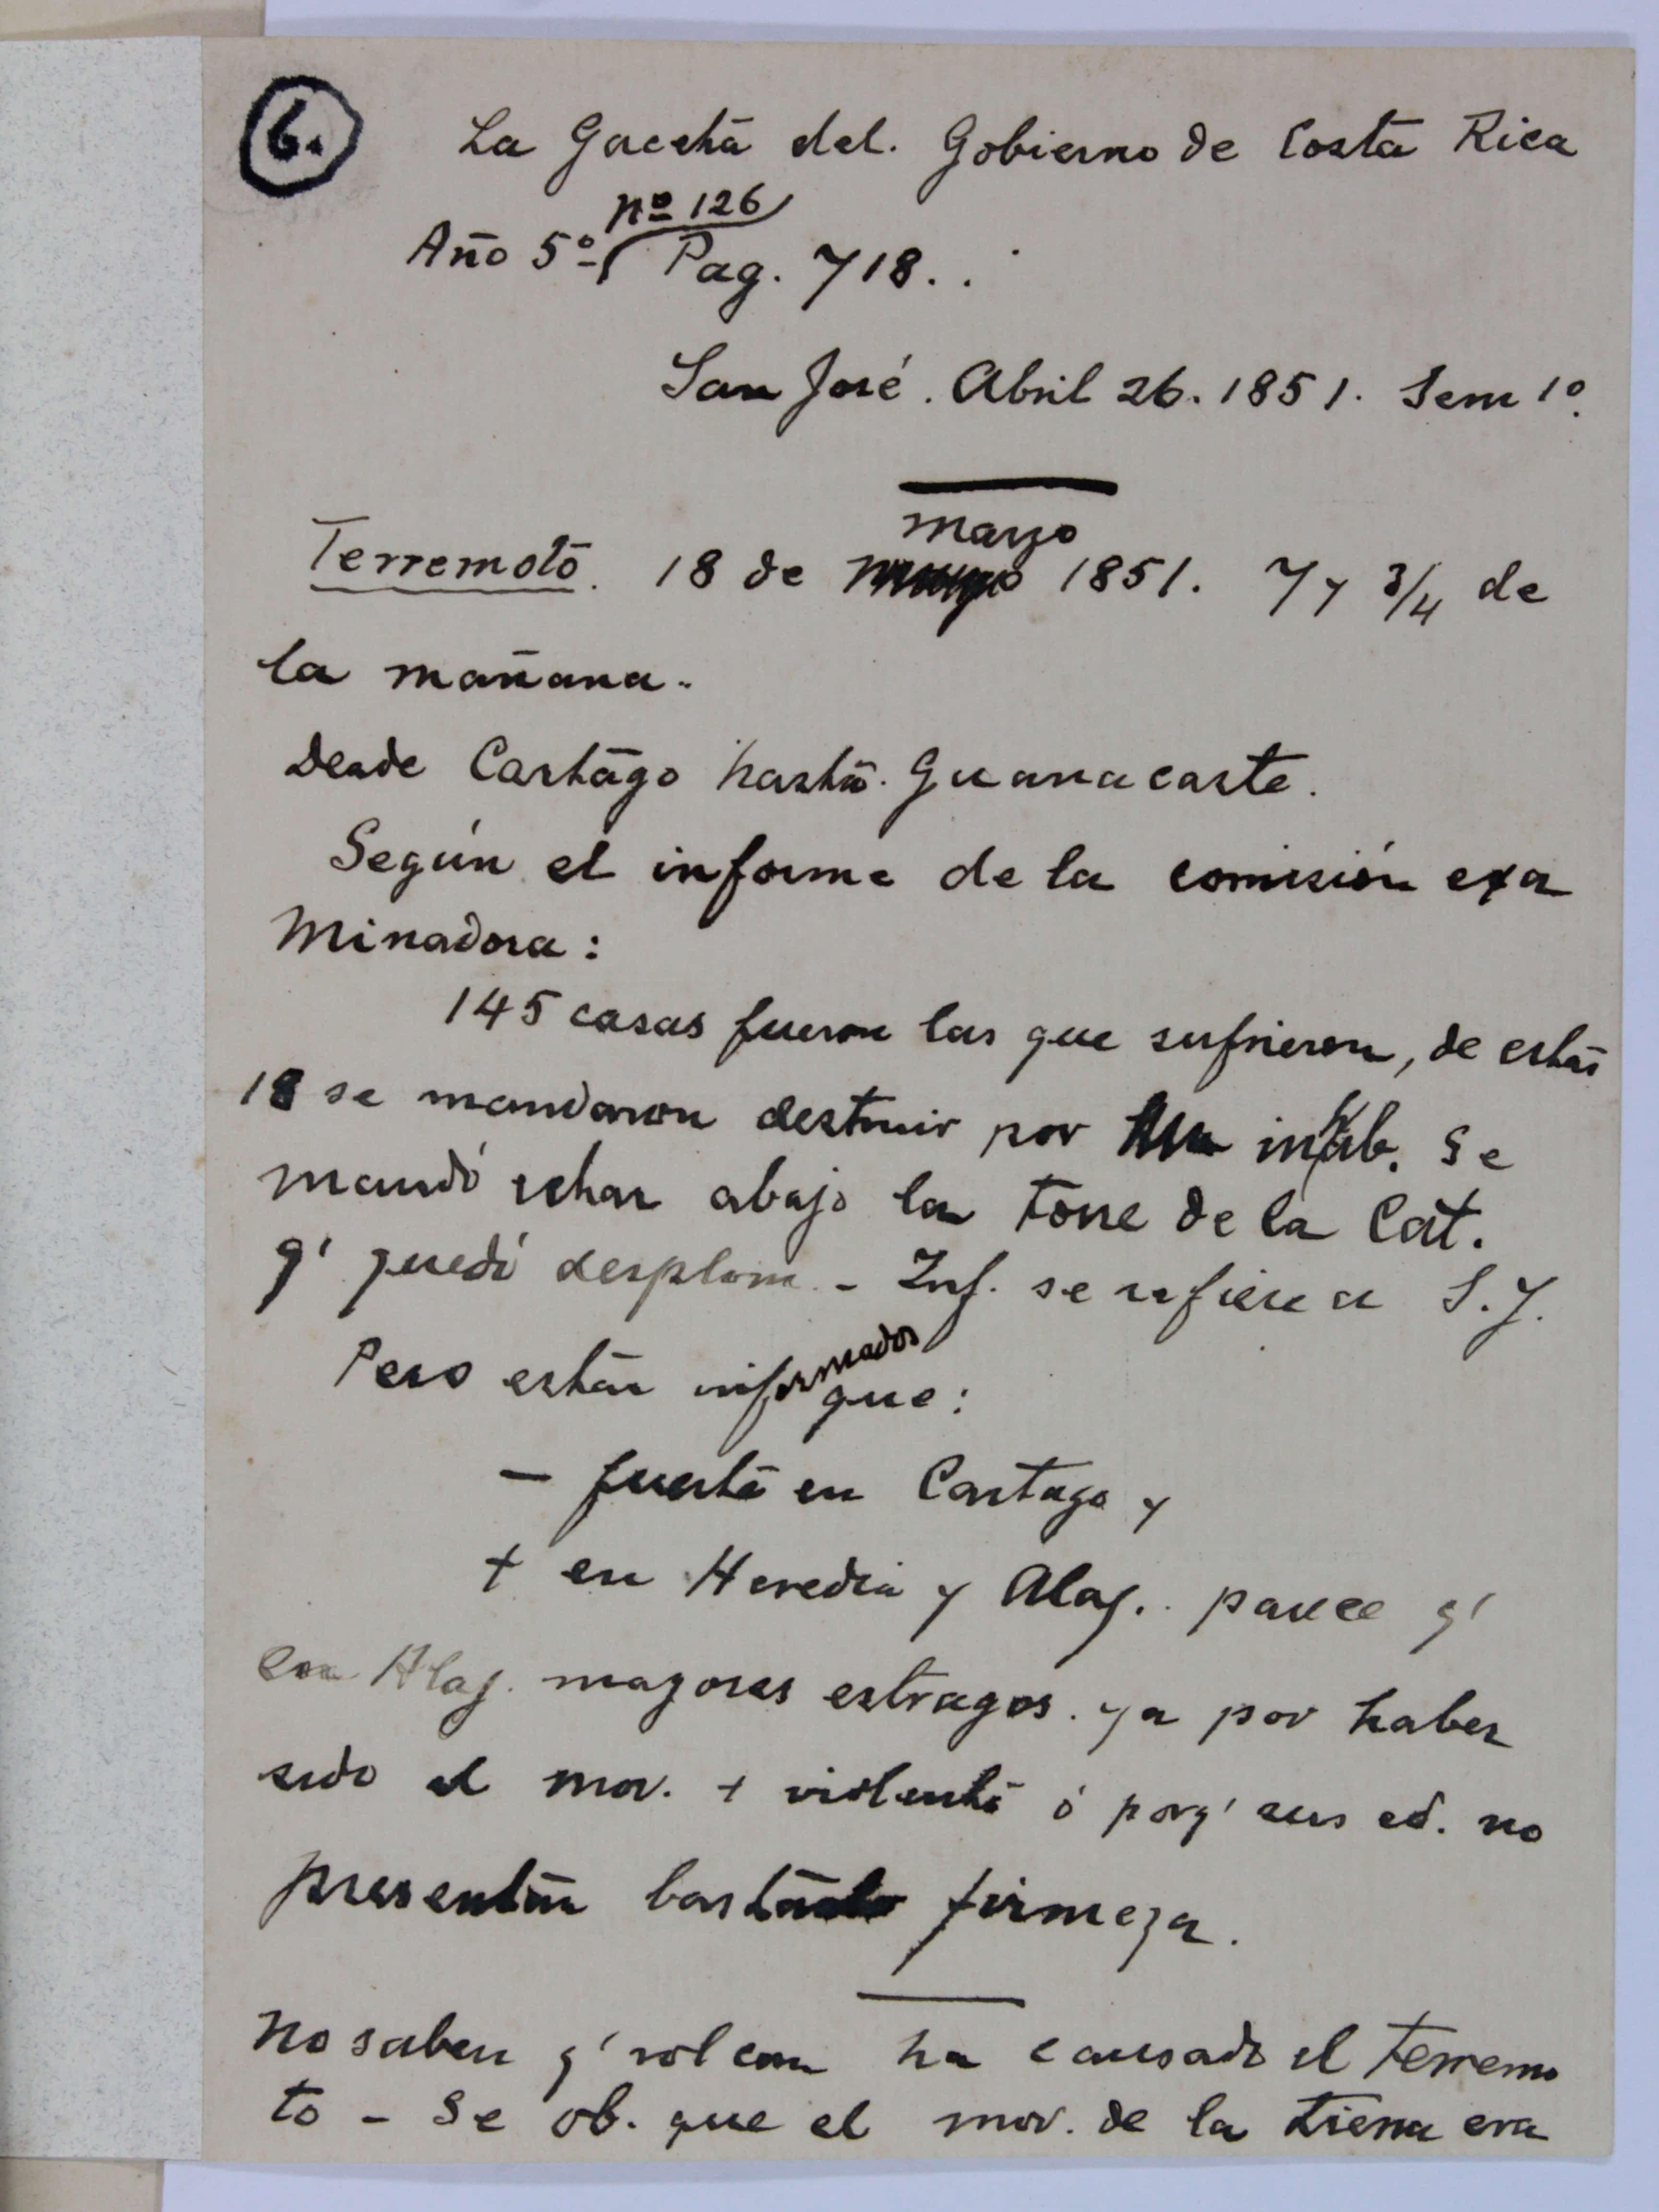 6.
La Gaceta del. Gobierno de Costa Rica
nº 126
Año 5º Pag. 718..
San José. Abril 26. 1851. Sem 1º.
marzo
Terremoto. 18 de 1851. 7 y 3/4 de
la mañana.
Desde Cartago hasta. Guanacaste.
Según el informe de la comisión exa
minadora:
145 casas fueron las que sufrieron, de estas
18 se mandaron destruir por inhab. Se
mandó echar abajo la torre de la Cat.
q' quedó desplom. - Inf. se refiere a S.J.
Pero están informados
que:
- fuerte en Cartago y
+ en Heredia y Alaj.. parece q'
en Alaj. mayores estragos. ya por haber
sido el mov. + violento ó porq' sus ed. no
presentan bastante firmeza.
No saben q' volcan ha causado el terremo
to - Se ob. que el mov. de la tierra era